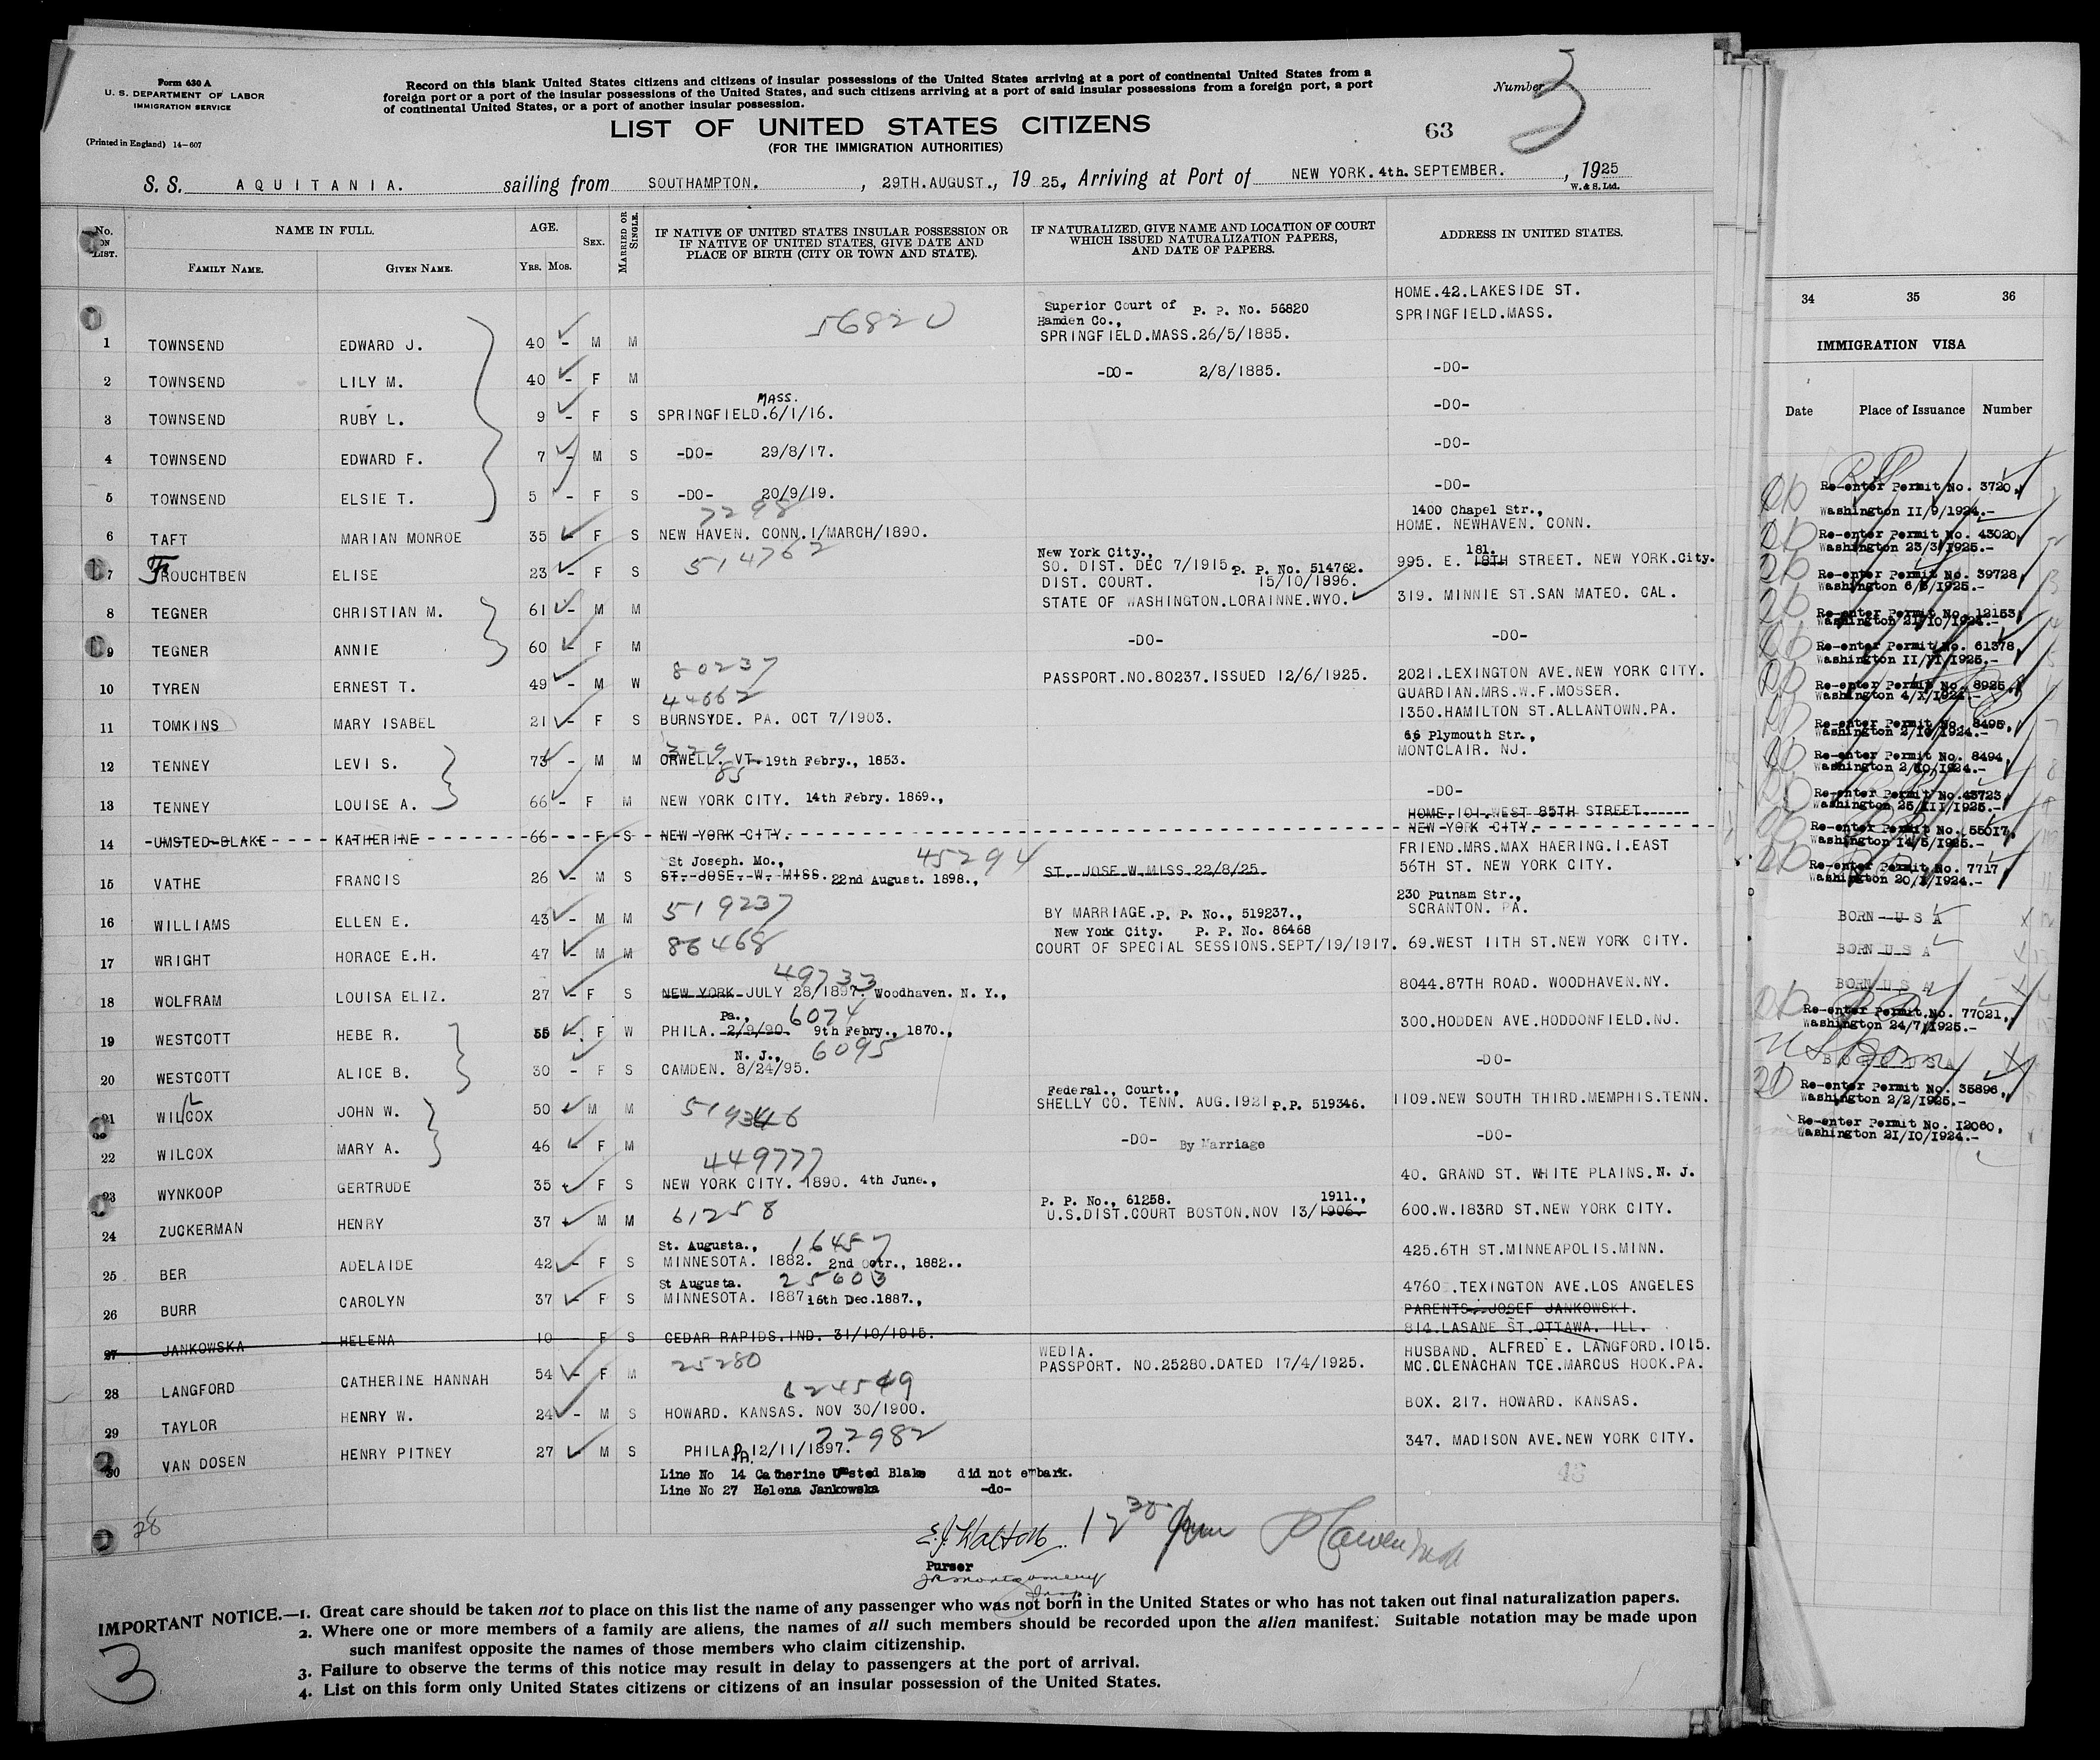 Form 630 A
U. S. DEPARTMENT OF LABOR
IMMIGRATION SERVICE
(Printed in England) 14-607
Record on this blank United States citizens and citizens of insular possessions of the United States arriving at a port of continental United States from a
foreign port or a port of the insular possessions of the United States, and such citizens arriving at a port of said insular possessions from a foreign port, a port
of continental United States, or a port of another insular possession.
Number 3
LIST OF UNITED STATES CITIZENS
63
(FOR THE IMMIGRATION AUTHORITIES)
S. S. AQUITANIA. sailing from SOUTHAMPTON. , 29TH.AUGUST., 1925., Arriving at Port of NEW YORK. 4th. SEPTEMBER. , 1925
W. & S. Ltd.
No. ON LIST. NAME IN FULL. AGE. SEX. MARRIED OR SINGLE. IF NATIVE OF UNITED STATES INSULAR POSSESSION OR IF NATIVE OF UNITED STATES, GIVE DATE AND PLACE OF BIRTH (CITY OR TOWN AND STATE). IF NATURALIZED, GIVE NAME AND LOCATION OF COURT WHICH ISSUED NATURALIZATION PAPERS, AND DATE OF PAPERS. ADDRESS IN UNITED STATES.
FAMILY NAME. GIVEN NAME. YRS. MOS.
HOME.42.LAKESIDE ST.
56820 Superior Court of P. P. No. 56820 SPRINGFIELD.MASS.
Hamden Co.,
1 TOWNSEND EDWARD J. 40 - M M SPRINGFIELD.MASS.26/5/1885.
2 TOWNSEND LILY M. 40 - F M -DO- 2/8/1885. -DO-
MASS.
3 TOWNSEND RUBY L. 9 - F S SPRINGFIELD.6/1/16. -DO-
4 TOWNSEND EDWARD F. 7 - M S -DO- 29/8/17. -DO-
5 TOWNSEND ELSIE T. 5 - F S -DO- 20/9/19. -DO-
7298 1400 Chapel Str.,
6 TAFT MARIAN MONROE 35 - F S NEW HAVEN. CONN.1/MARCH/1890. HOME. NEWHAVEN. CONN.
514762 New York City., 181.
7 FROUCHTBEN ELISE 23 - F S SO. DIST. DEC 7/1915. P. P. No. 514762. 995. E. 18TH STREET. NEW YORK.City.
DIST. COURT. 15/10/1896.
8 TEGNER CHRISTIAN M. 61 - M M STATE OF WASHINGTON.LORAINNE.WYO. 319. MINNIE ST.SAN MATEO. CAL.
9 TEGNER ANNIE 60 - F M -DO- -DO-
80237
10 TYREN ERNEST T. 49 - M W PASSPORT.NO.80237.ISSUED 12/6/1925. 2021.LEXINGTON AVE.NEW YORK CITY.
44662 GUARDIAN.MRS.W.F.MOSSER.
11 TOMKINS MARY ISABEL 21 - F S BURNSYDE. PA. OCT 7/1903. 1350.HAMILTON ST.ALLANTOWN.PA.
66 Plymouth Str.,
12 TENNEY LEVI S. 73 - M M ORWELL. VT. 19th Febry., 1853. MONTCLAIR. NJ.
13 TENNEY LOUISE A. 66 - F M NEW YORK CITY. 14th Febry. 1859., -DO-
HOME.101.WEST 85TH STREET.
14 UMSTED-BLAKE KATHERINE 66 - F S NEW YORK CITY. NEW YORK CITY.
St Joseph. Mo., 45294 FRIEND.MRS.MAX HAERING.1.EAST
15 VATHE FRANCIS 26 - M S ST. JOSE. W. MISS. 22nd August. 1898., ST. JOSE W.MISS 22/8/25. 56TH ST. NEW YORK CITY.
519237 230 Putnam Str.,
16 WILLIAMS ELLEN E. 43 - M M BY MARRIAGE.P. P. No., 519237., SCRANTON. PA.
86468 New York City. P. P. No. 86468
17 WRIGHT HORACE E.H. 47 - M M COURT OF SPECIAL SESSIONS.SEPT/19/1917. 69.WEST 11TH ST.NEW YORK CITY.
49733
18 WOLFRAM LOUISA ELIZ. 27 - F S NEW YORK JULY 28/1897. Woodhaven. N. Y., 8044.87TH ROAD. WOODHAVEN.NY.
Pa., 6074
19 WESTCOTT HEBE R. 55 - F W PHILA. 2/9/90. 9th Febry., 1870., 300.HODDEN AVE.HODDONFIELD.NJ.
N. J., 6095
20 WESTCOTT ALICE B. 30 - F S CAMDEN. 8/24/95. -DO-
Federal., Court.,
21 WILCOX JOHN W. 50 - M M 519346 SHELLY CO. TENN. AUG.1921 P.P. 519346. 1109.NEW SOUTH THIRD.MEMPHIS.TENN.
22 WILCOX MARY A. 46 - F M -DO- By Marriage -DO-
449777
23 WYNKOOP GERTRUDE 35 - F S NEW YORK CITY. 1890. 4th June., 40. GRAND ST. WHITE PLAINS.N. J.
61258 P. P. No., 61258. 1911.,
24 ZUCKERMAN HENRY 37 - M M U.S.DIST.COURT BOSTON.NOV 13/1906. 600.W.183RD ST.NEW YORK CITY.
St. Augusta., 16457
25 BER ADELAIDE 42 - F S MINNESOTA. 1882. 2nd Octr., 1882.. 425.6TH ST.MINNEAPOLIS.MINN.
St Augusta. 25603
26 BURR CAROLYN 37 - F S MINNESOTA. 1887 16th Dec.1887., 4760 .TEXINGTON AVE.LOS ANGELES
PARENTS. JOSEF JANKOWSKI.
27 JANKOWSKA HELENA 10 F S CEDAR RAPIDS.IND. 31/10/1915. 814.LASANE ST.OTTAWA. ILL.
25280 WEDIA. HUSBAND. ALFRED E. LANGFORD.1015.
28 LANGFORD CATHERINE HANNAH 54 - F M PASSPORT. NO.25280.DATED 17/4/1925. MC.CLENACHAN TCE.MARCUS HOOK.PA.
624549
29 TAYLOR HENRY W. 24 - M S HOWARD. KANSAS. NOV 30/1900. BOX. 217. HOWARD. KANSAS.
22982
30 VAN DOSEN HENRY PITNEY 27 - M S PHILA PA. 12/11/1897. 347. MADISON AVE.NEW YORK CITY.
Line No 14 Catherine Umsted Blake did not embark.
Line No 27 Helena Jankowska -do-
28
E.J. Walton
Purser
IMPORTANT NOTICE.—1. Great care should be taken not to place on this list the name of any passenger who was not born in the United States or who has not taken out final naturalization papers.
2. Where one or more members of a family are aliens, the names of all such members should be recorded upon the alien manifest. Suitable notation may be made upon
such manifest opposite the names of those members who claim citizenship.
3. Failure to observe the terms of this notice may result in delay to passengers at the port of arrival.
4. List on this form only United States citizens or citizens of an insular possession of the United States.
3
34 35 36
IMMIGRATION VISA
Date Place of Issuance Number
Re-enter Permit No. 3720,
Washington II/9/1924.-
Re-enter Permit No. 43020,
Washington 23/3/1925.-
Re-enter Permit No. 39728,
Washington 6/3/1925.-
Re-enter Permit No. 12153
Washington 21/10/1924.-
Re-enter Permit No. 61378,
Washington II/VI/1925.-
Re-enter Permit No. 8925.
Washington 4/X/1924.-
Re-enter Permit No. 8495,
Washington 2/10/1924.-
Re-enter Permit No. 8494,
Washington 2/10/1924.-
Re-enter Permit No.43723
Washington 25/III/1925.-
Re-enter Permit No. 55017,
Washington 14/5/1925.-
Re-enter Permit No. 7717
Washington 20/X/1924.-
BORN U S A
BORN U S A
BORN U S A
Re-enter Permit No. 77021,
Washington 24/7/1925.-
US Born
Re-enter Permit No. 35896,
Washington 2/2/1925.-
Re-enter Permit No. 12060,
Washington 21/10/1924.-